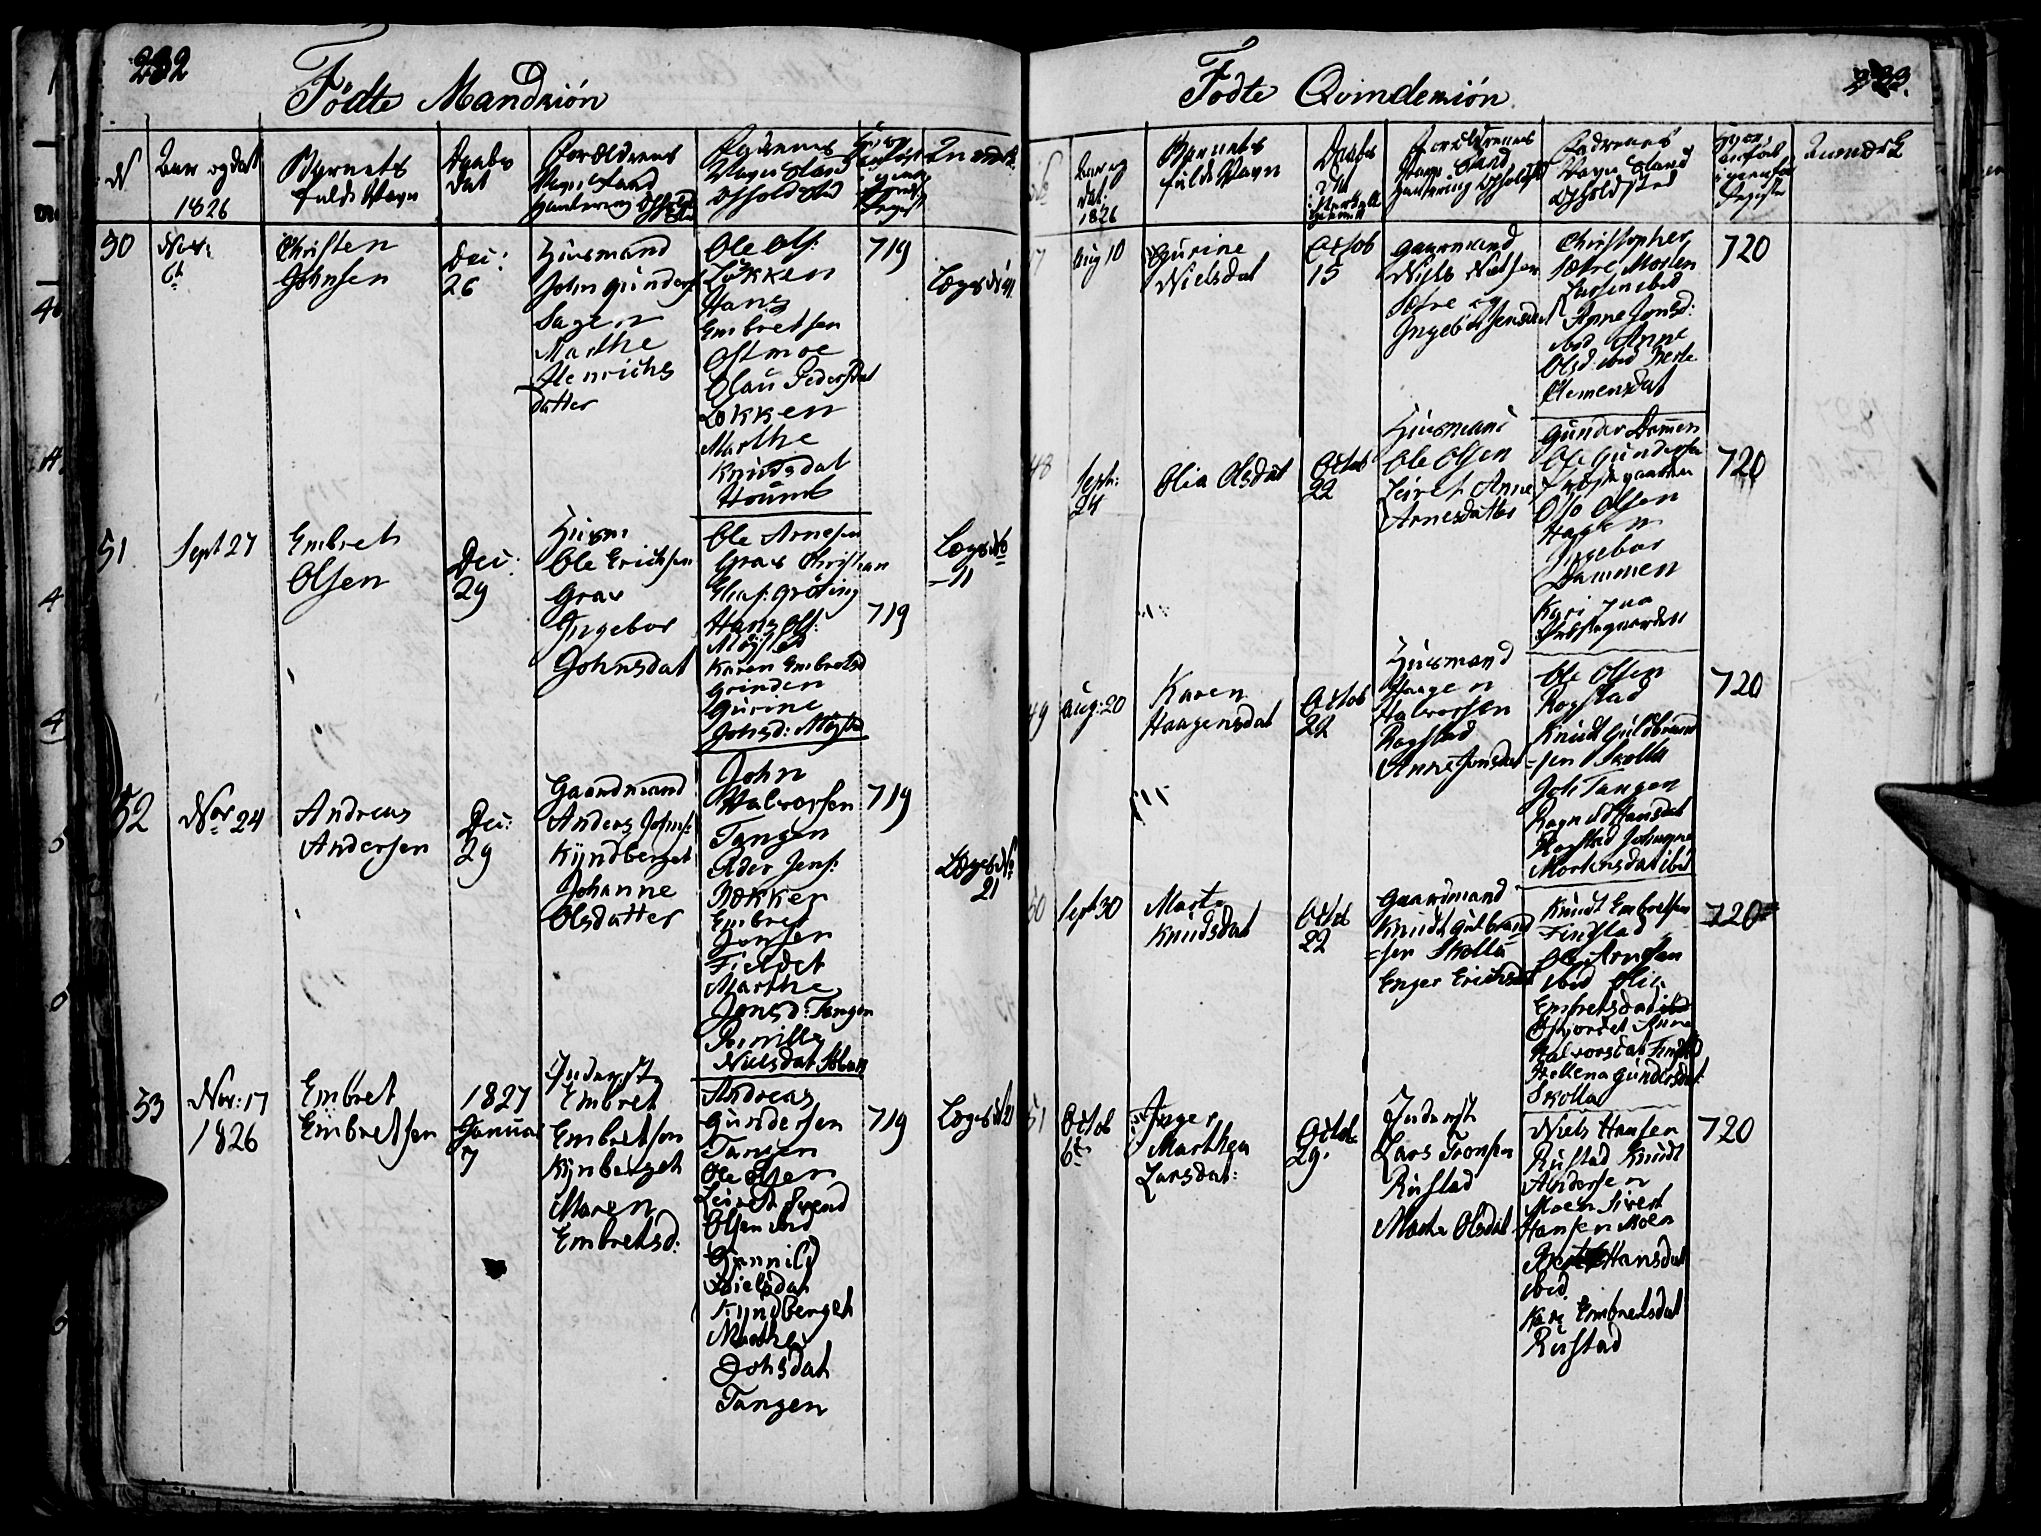 232
Födte Mandkiön
N
Aar og dat
1826
Barnets
fulde Navn
Daabs
dat
Forældrenes
Navn Stand
Handtering Opholds
Sted
Faddernes
Navn Stand
Opholdsted
Anmærk.
50
Nov:
6t
Christen
Johnsen
Dec:
26
Huusmand
John Gunders:
Sagen
Marthe
Henrichs
datter
Ole Ols:
Løkken
Hans
Embretsen
Ostmoe
Olau Pedersdat
Løkken
Marthe
Knudsdat
719
51
Sept 27
Embret
Olsen
Dec:
29
Huusm
Ole Erichsen
Grav
Ingebor
Johnsdat
Ole Arnesen
Grav Christian
Elias: Grøting
Hans Ols:
Møystad
Karen Embretsd
Grinden
Gurine
Johsd: Møysta
719
Lægds No
11
52
Nov 24
Andreas
Andersen
Dec:
29
Gaardmand
Anders Johns:
Kyndberget
Johanne
Olsdatter
John
Halvorsen
Tangen
Peder Jens:
Bekken
Embret
Jonsen
Fieldet
Marthe
Jonsd: Tangen
Pernille
Nielsdat
719
Lægds No
21
53
Nov: 17
1826
Embret
Embretsen
1827
Januar
7
Inderst
Embret
Embretsen
Kynberget
Maren
Embretsd:
Andreas
Gundersen
Tangen
Ole Olsen
Leiret Svend
Olsen ibid
Gunnild
Nielsdat
Kyndberget
Marthe
Johsdat
Tangen
719
Lægds No 21
233.
Födte Qvindekiön
Aar og
dat.
1826
Barnets
fulde Navn
Forældrenes
Navn Stand
Handtering Opholdst
Faddrenes
Navn Stand
Opholdsted
Anmærk
47
Aug 10
Gurine
Nielsdat
Octob
15
Gaarmand
Niels Nielsen
Sætre og
Ingebor Jensdat
Christopher
Sætre Morten
Larsen ibid
Anne Jonsd:
ibid Anne
Olsd: ibid Berte
Clemensdat
720
48
Sept:
24
Olia Olsdat
Octob
22
Huusmand
Ole Olsen
Leiret Anne
Arnesdatter
Gunder Dammen
Ole Gundersen
Præstegaarden
Otto Olsen
Hagen
Ingebor
Dammen
Kari paa
Præstegaarden
720
49
Aug: 20
Karen
Haagensdat
Octob
22
Huusmand
Haagen
Halvorsen
Rogstad
Anne Jonsdat
Ole Olsen
Rogstad
Knudt Guldbrand
=sen Skolla
Joh Tangen
Ragnild Hansdat
Rogstad Johanne
Mortensdat ibid
720
50
Sept 30
Marte
Knudsdat
Octob
22
Gaardmand
Knudt Gulbrand
=sen Skolla
Enger Erichsdat
Knudt Embretsen
Findstad
Ole Arnesen
ibid Olia
Embretsdat ibid
Anne
Halvorsdat Findstad
Hellena Gundersdat
Skolla
720
51
Octob
6te
Inger
Marthea
Larsdat:
Octob
29.
Inderst
Lars Tronsen
Rustad
Marte Olsdat
Niels Hansen
Rustad Knudt
Andersen
Moen Sivert
Hansen Moen
Berte Hansdat
ibid.
Kari Embretsdat
Rustad
720